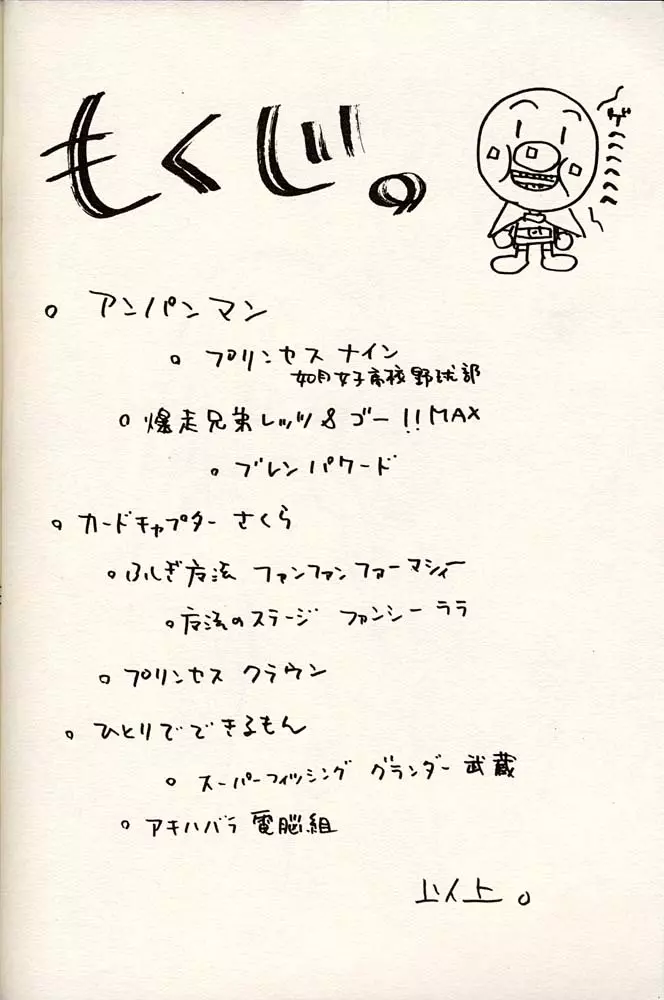 もくじ。
ゲ
・アンパンマン
・プリンセス ナイン
如月女子高校野球部
・爆走兄弟レッツ&ゴー!!MAX
・ブレンパワード
・カードキャプターさくら
・ふしぎ魔法 ファンファンファーマシィー
・魔法のステージ ファンシーララ
・プリンセス クラウン
・ひとりでできるもん
・スーパーフィッシング グランダー武蔵
・アキハバラ電脳組
以上。